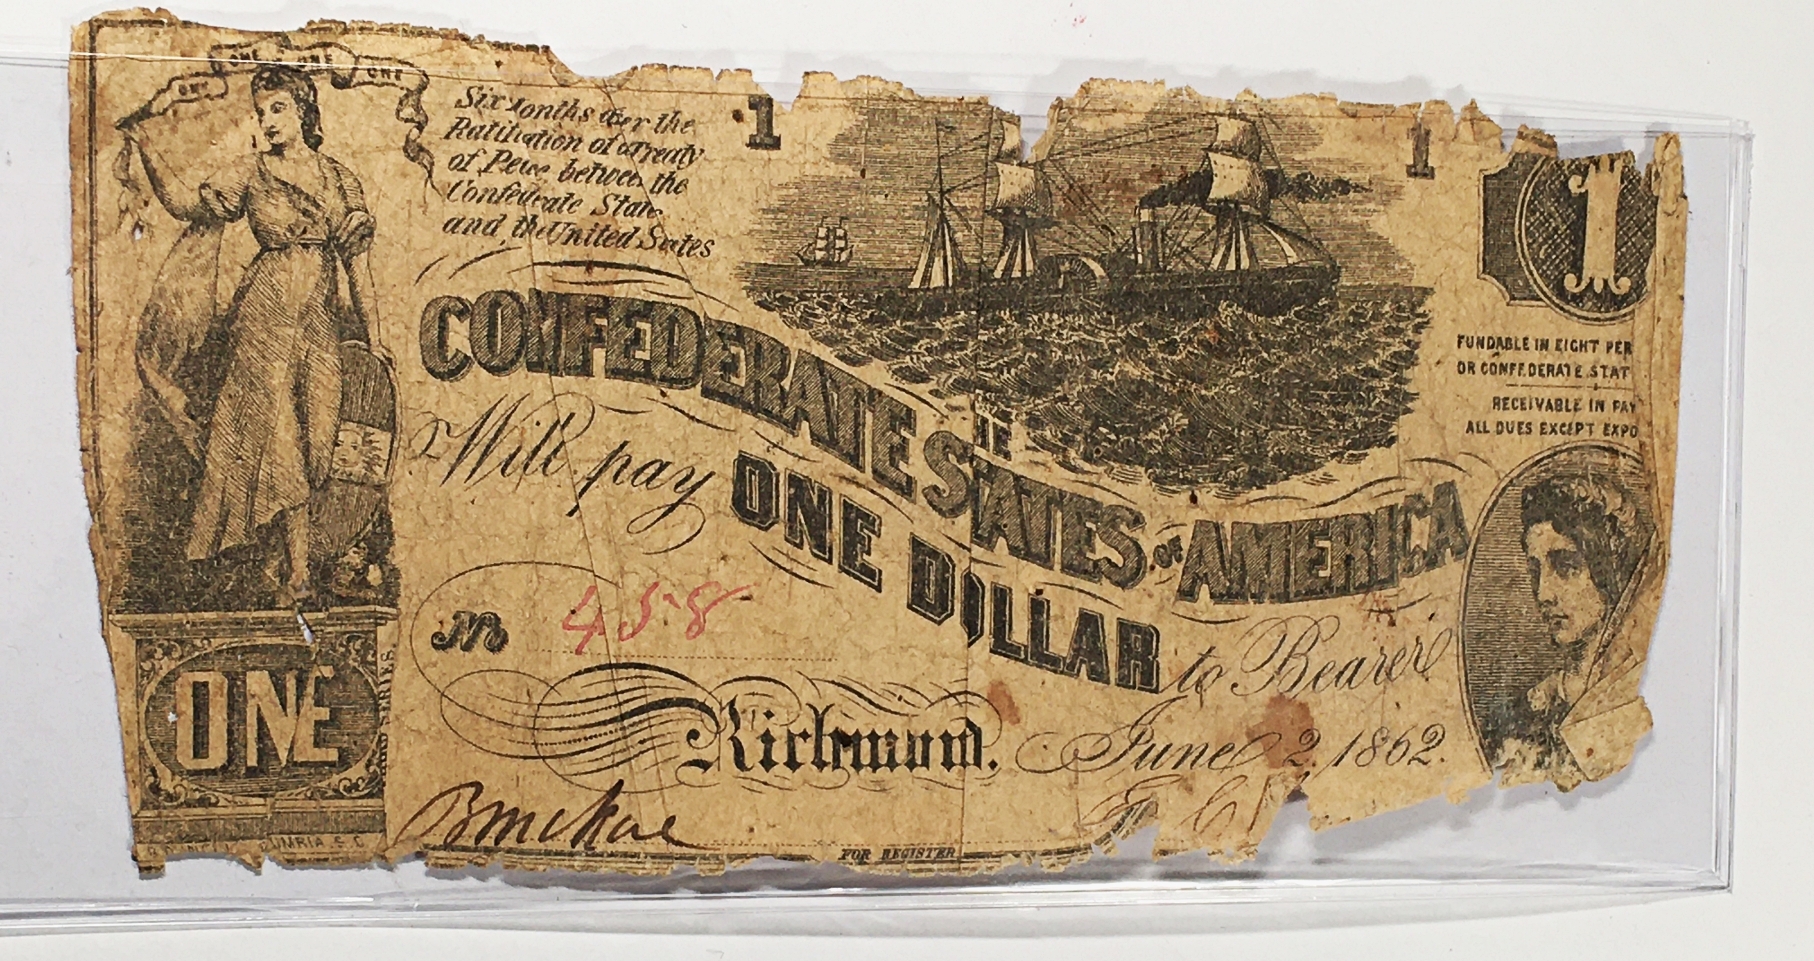 ONE ONE ONE ONE
Six onths ter the
Ratifi ation of Treaty
of Pe ce betwee the
Confederate State
and th United States
1
1
1
FUNDABLE IN EIGHT PER
OR CONFEDERATE STAT
RECEIVABLE IN PAY
ALL DUES EXCEPT EXPO
THE
CONFEDERATE STATES OF AMERICA
Will pay ONE DOLLAR to Bearer
No 458
Richmond. June 2. 1862.
ONE
SERIES
UMBIA S.C.
FOR REGISTER